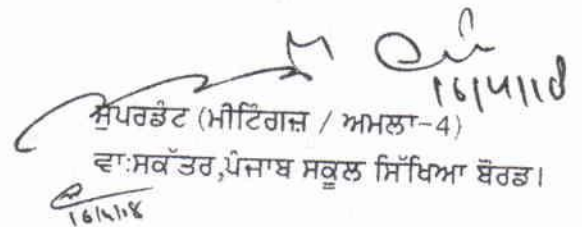 16/4/18
ਸੁਪਰਡੰਟ (ਮੀਟਿੰਗਜ਼ / ਅਮਲਾ-4)
ਵਾ:ਸਕੱਤਰ,ਪੰਜਾਬ ਸਕੂਲ ਸਿੱਖਿਆ ਬੋਰਡ।
16/4/18